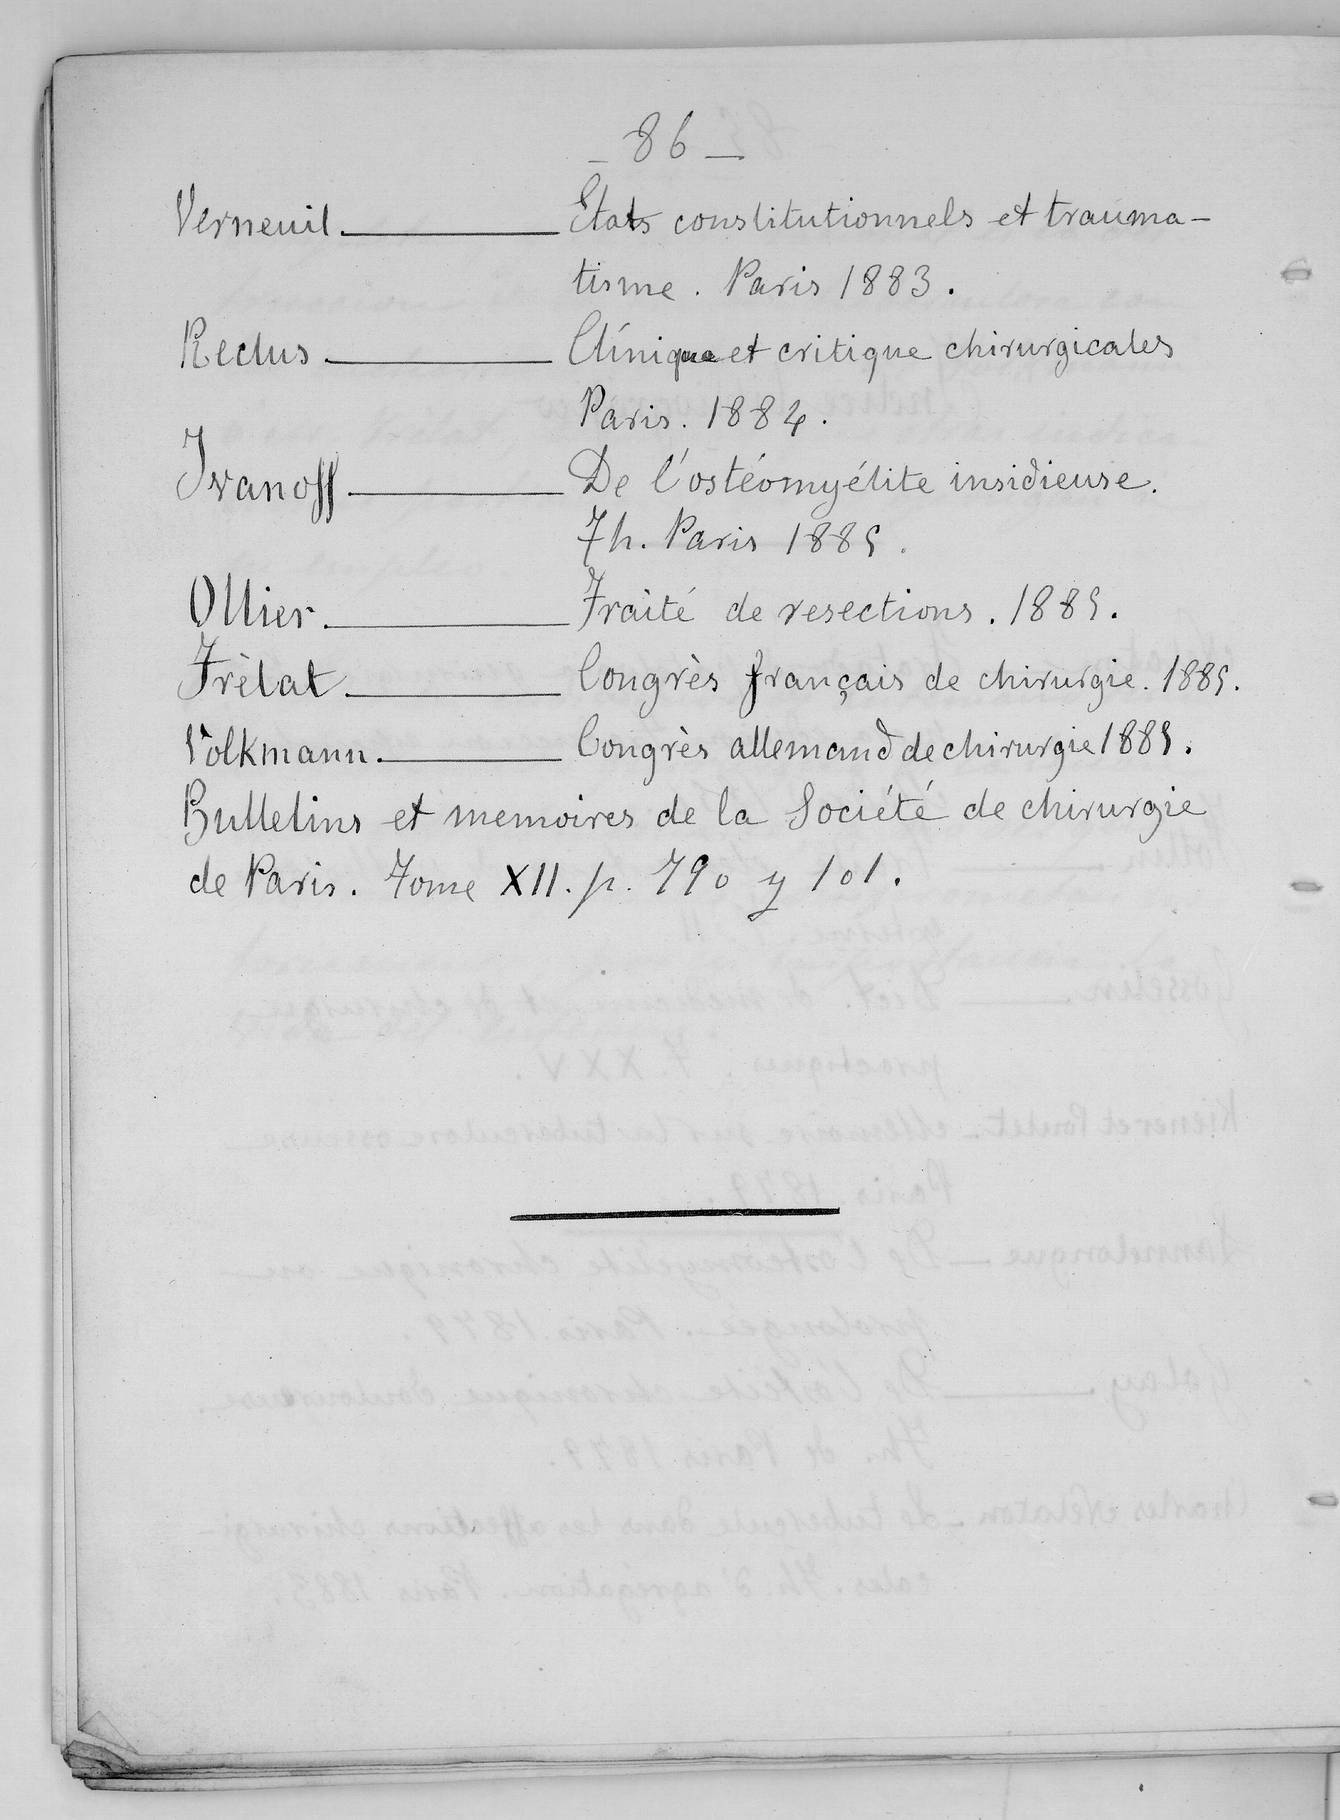 – 86 –
Verneuil. ——— Etats constitutionnels et trauma-
tisme. Paris 1883.
Reclus ——— Clínique et critique chirurgicales
Paris. 1884.
Ivanoff ——— De l'ostéomyélite insidieuse.
Th. Paris 1885.
Ollier. ——— Traité de resections. 1885.
Trèlat ——— Congrès français de chirurgie. 1885.
Volkmann. ——— Congrès allemand de chirurgie 1885.
Bulletins et memoires de la Société de chirurgie
de Paris. Tome XII. p. 790 y 101.